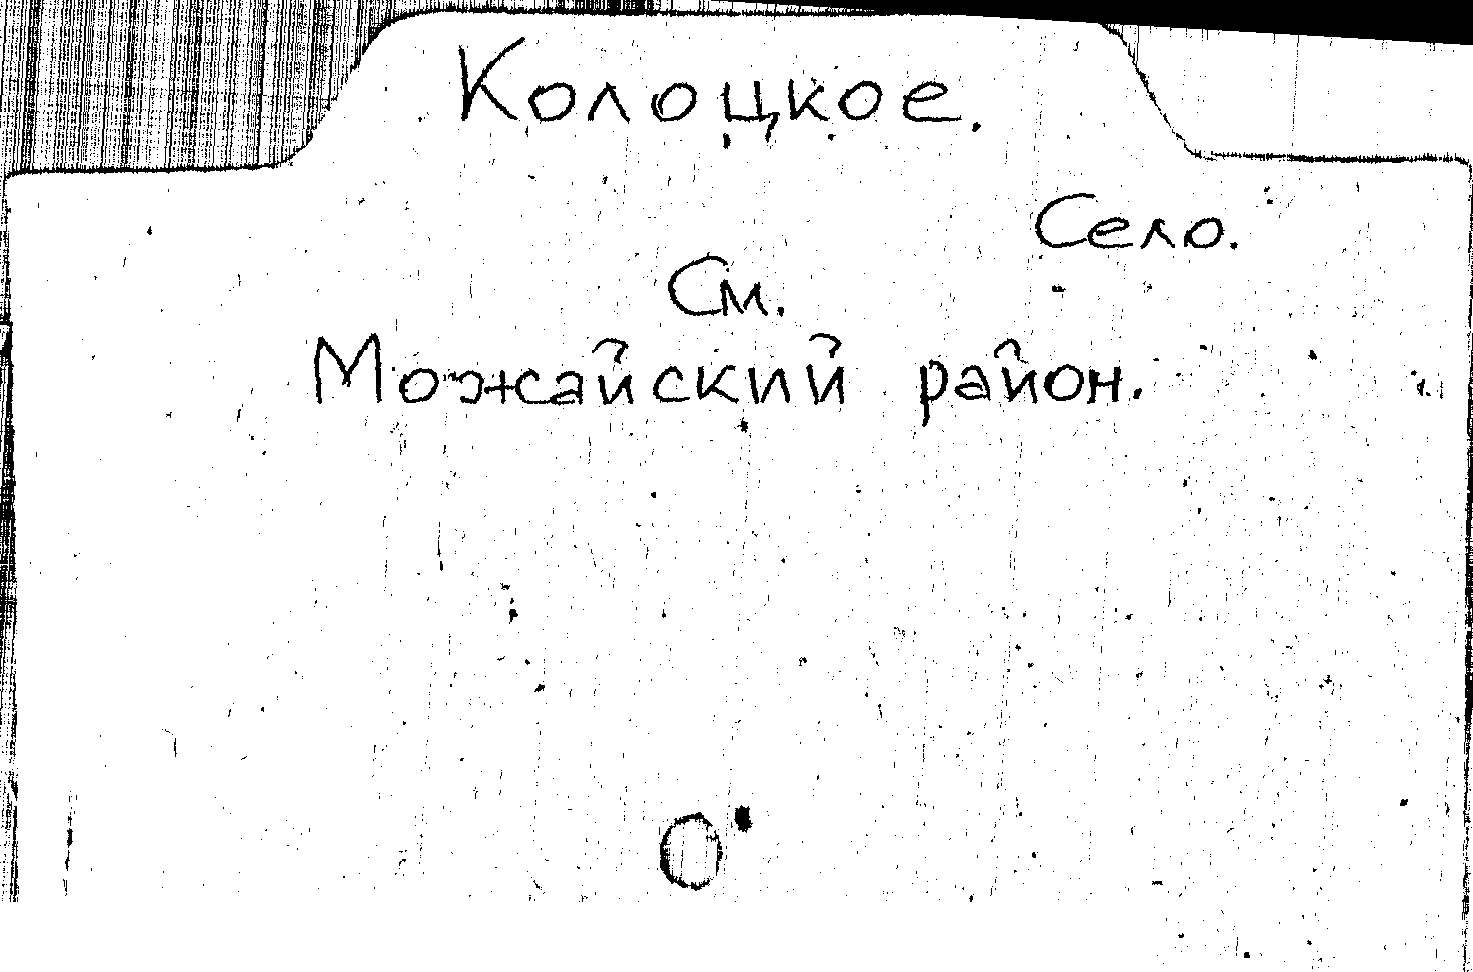 Колоцкое.
Село.
См.
Можайский район.